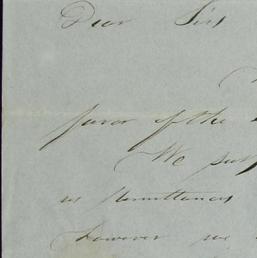 Dear Sirs
favor of the
We
as Remittances
however we